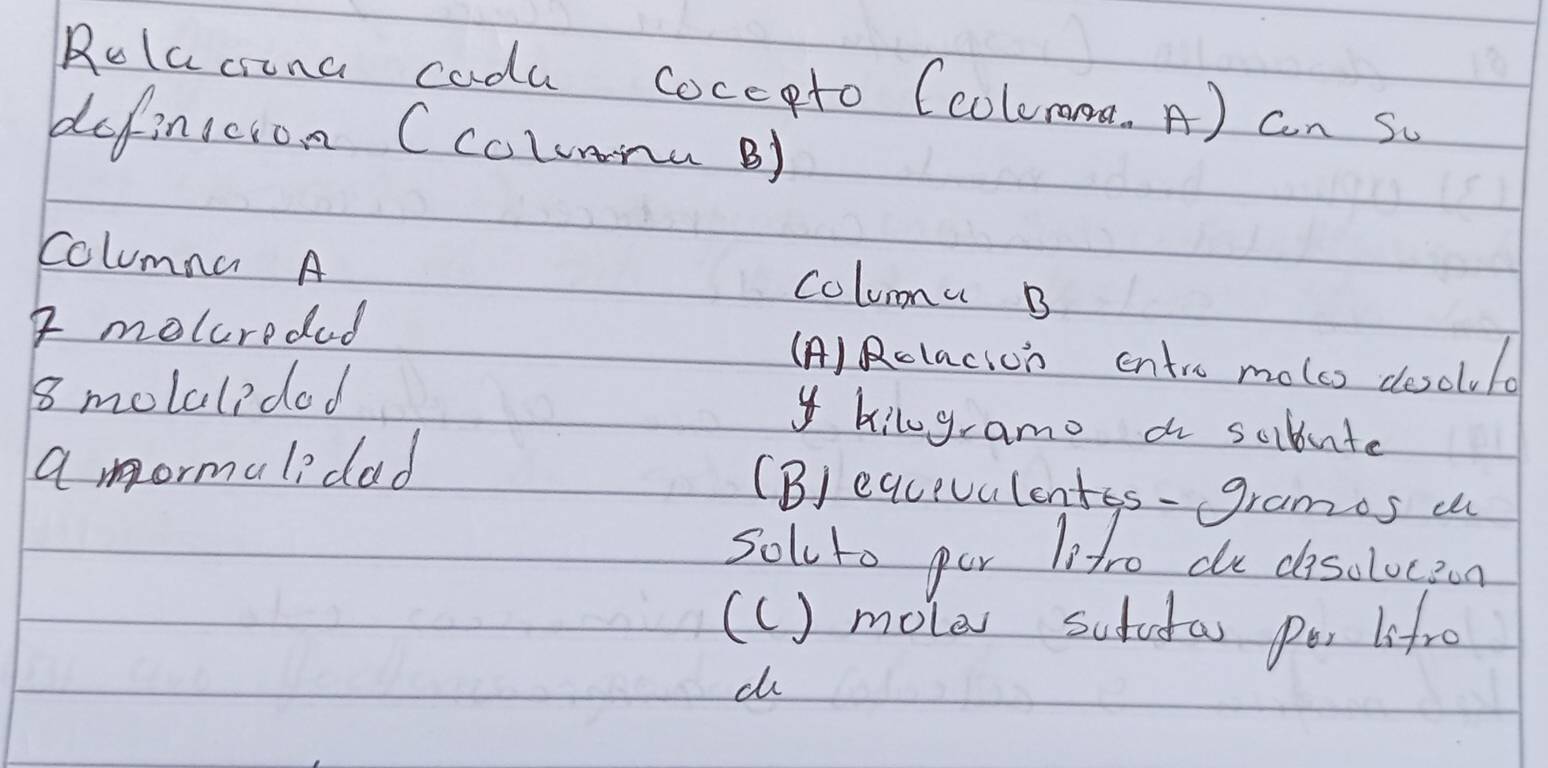 Relaciona cada cocepto (columna. A) con su
definicion (columna B)
Columna A
7 molaredad
8 molalidad
9 normalidad
Columna B
(A) Relación entre moles desoluto
y kilogramo de solbente
(B) equivalentes - gramos de
soluto por litro de disolucion
(C) moles por litro
de